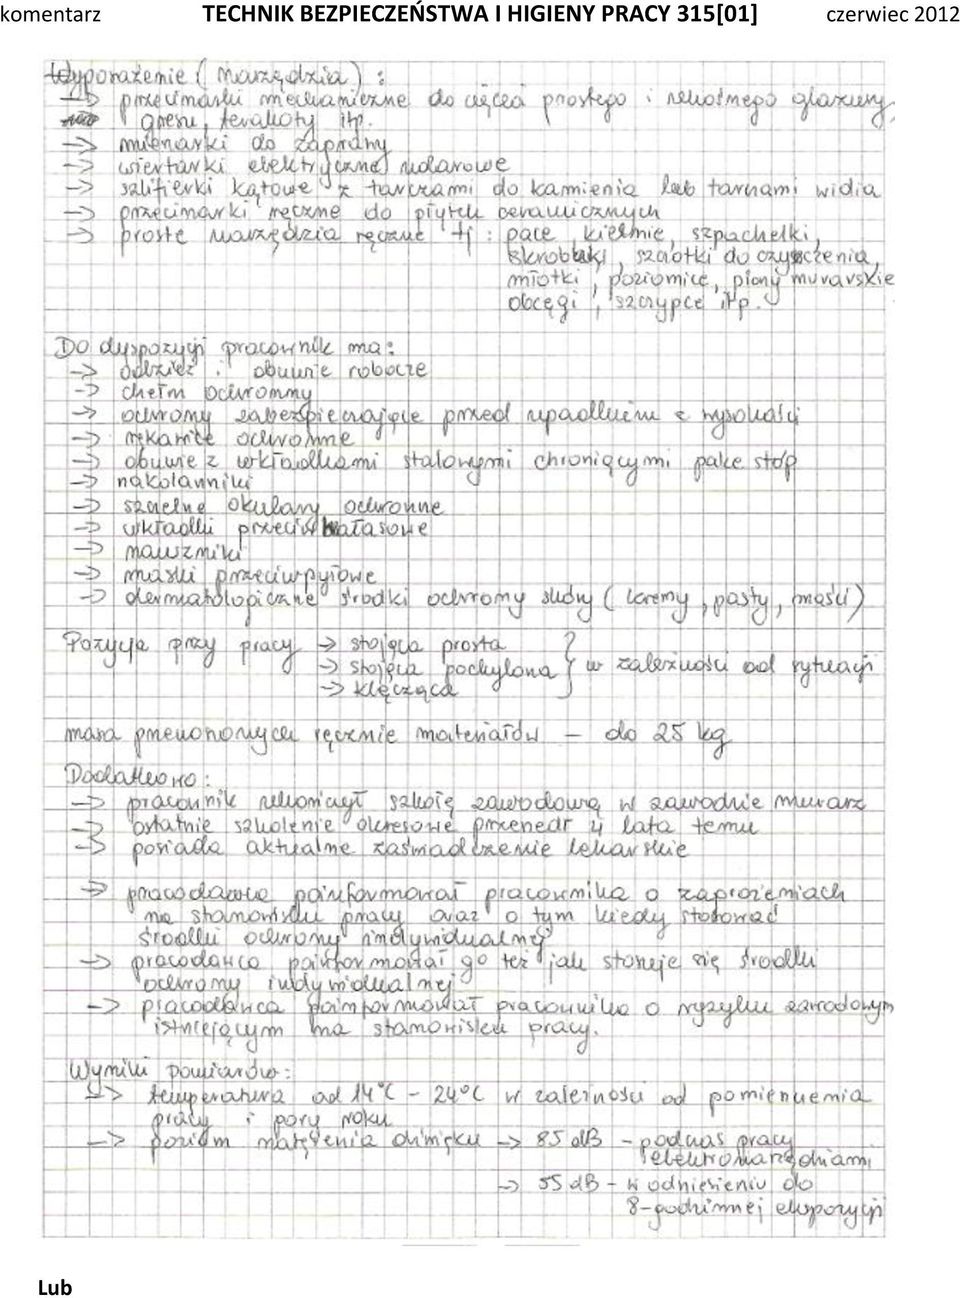 komentarz TECHNIK BEZPIECZEŃSTWA I HIGIENY PRACY 315[01] czerwiec 2012
Wyposażenie (narzędzia) :
-> przecinarki mechaniczne do cięcia prostego i ukośnego glazury,
gresu, terakoty itp.
-> mieszarki do zaprawy
-> wiertarki elektryczne udarowe
-> szlifierki kątowe z tarczami do kamienia lub tarczami widia
-> przecinarki ręczne do płytek ceramicznych
-> proste narzędzia ręczne tj : pace, kielnie, szpachelki,
skrobaki, szczotki do czyszczenia,
młotki, poziomice, piony murarskie
obcęgi, szczypce itp.
Do dyspozycji pracownik ma:
-> odzież i obuwie robocze
-> chełm ochronny
-> ochrony zabezpieczające przed upadkiem z wysokości
-> rękawice ochronne
-> obuwie z wkładkami stalowymi chroniącymi palce stóp
-> nakolanniki
-> szczelne okulary ochronne
-> wkładki przeciwhałasowe
-> nauszniki
-> maski przeciwpyłowe
-> dermatologiczne środki ochrony skóry (kremy, pasty, maści)
Pozycja przy pracy -> stojąca prosta
-> stojąca pochylona } w zależności od sytuacji
-> klęcząca
masa przenoszonych ręcznie materiałów - do 25 kg
Dodatkowo :
-> pracownik ukończył szkołę zawodową w zawodzie murarz
-> ostatnie szkolenie okresowe przeszedł 4 lata temu
-> posiada aktualne zaświadczenie lekarskie
-> pracodawca poinformował pracownika o zagrożeniach
na stanowisku pracy oraz o tym kiedy stosować
środki ochrony indywidualnej
-> pracodawca poinformował go też jak stosuje się środki
ochrony indywidualnej
-> pracodawca poinformował pracownika o ryzyku zawodowym
istniejącym na stanowisku pracy.
Wyniki pomiarów:
-> temperatura od 14°C - 24°C w zależności od pomieszczenia
pracy i pory roku
-> poziom natężenia dźwięku -> 85 dB - podczas pracy
elektronarzędziami,
-> 55 dB - w odniesieniu do
8-godzinnej ekspozycji
Lub